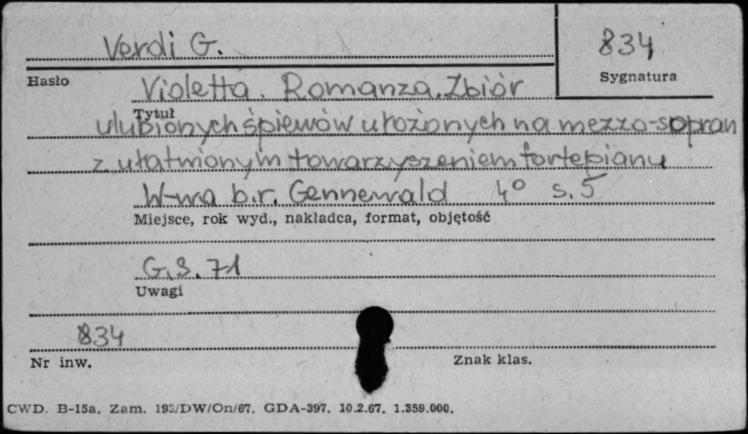 Verdi G.
834
Hasło
Sygnatura
Violetta. Romanza. Zbiór
Tytuł
ulubionych śpiewów ułożonych na mezzo-sopran
z ułatwionym towarzyszeniem fortepianu
W-wa b.r. Gennewald 4° s. 5
Miejsce, rok wyd., nakładca, format, objętość
G.S. 71
Uwagi
834
Nr inw.
Znak klas.
CWD. B-15a. Zam. /DW/On/67. GDA-397. 10.2.67. 1.359.000.